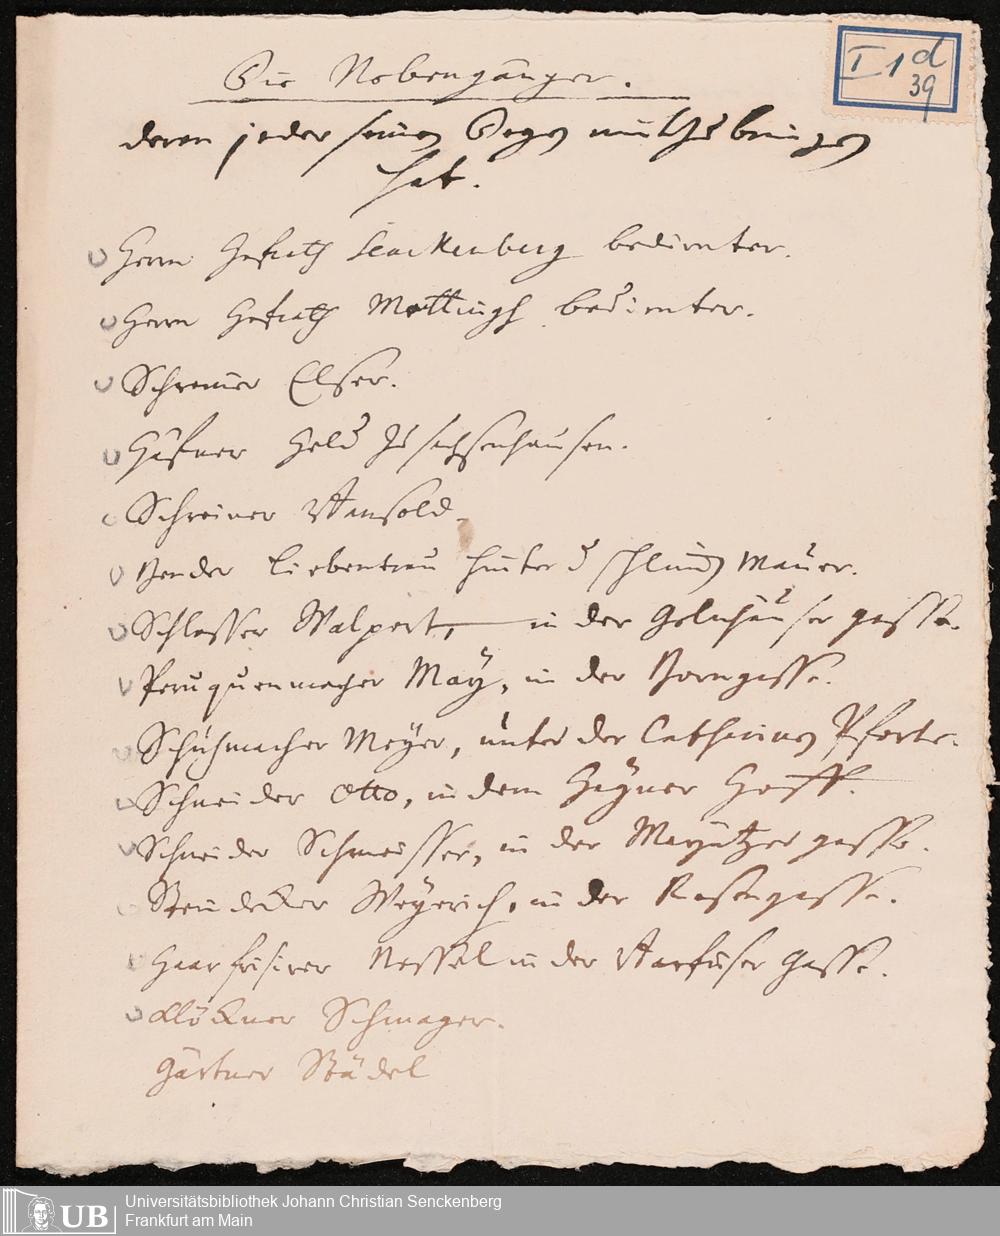 Die Nebengänger.
deren jeder seinen Degen mit zu bringen
hat.
I 1 d
39
Herrn Hofrath Senckenberg bedienter.
Herrn Hofrath Mettingh bedienter.
Schreiner Elser.
Häfner Held zu sachsenhausen.
Schreiner Bansold.
Bender Liebentrau hinter d schlim Mauer.
Schlosser Walpert, in der Gelnhäuser gasse.
Peruquenmacher May, in der Borngasse.
Schuhmacher Meyer, unter der Catharinen Pforte.
Schneider Otto, in dem Hayner Hoff.
Schneider Schmeisser, in der Mayntzer gasse.
Steindecker Weyerich, in der Rosengasse.
Haarfrisirer Nessel in der Barfuser Gasse.
Glöckner Schwager.
Gärtner Städel
UB
Universitätsbibliothek Johann Christian Senckenberg
Frankfurt am Main